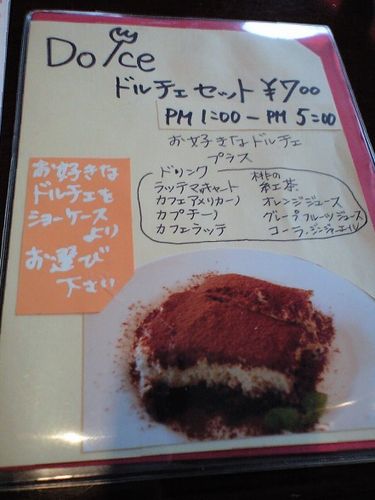 Dolce
ドルチェセット ¥700
PM 1:00 — PM 5:00
お好きなドルチェ
プラス
ドリンク
ラッテマキャート
カフェアメリカーノ
カプチーノ
カフェラッテ
桃の
紅茶
オレンジジュース
グレープフルーツジュース
コーラ、ジンジャーエール
お好きな
ドルチェを
ショーケース
より
お選び
下さい